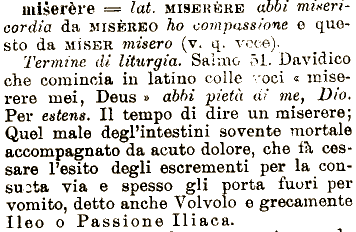 miṡerère = lat. MISERÈRE abbi miseri-
cordia da MISÈREO ho compassione e que-
sto da MÌSER misero (v. q. voce).
Termine di liturgia. Salmo 51. Davidico
che comincia in latino colle voci « mise-
rere mei, Deus » abbi pietà di me, Dio.
Per estens. Il tempo di dire un miserere;
Quel male degl'intestini sovente mortale
accompagnato da acuto dolore, che fà ces-
sare l'esito degli escrementi per la con-
sueta via e spesso gli porta fuori per
vomito, detto anche Volvolo e grecamente
Ileo o Passione Iliaca.